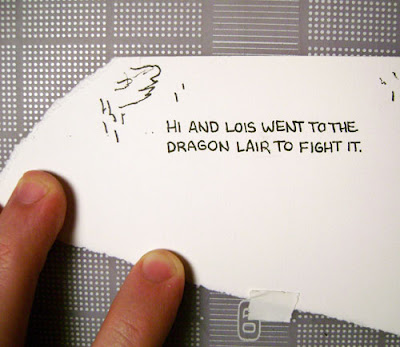 HI AND LOIS WENT TO THE
DRAGON LAIR TO FIGHT IT.